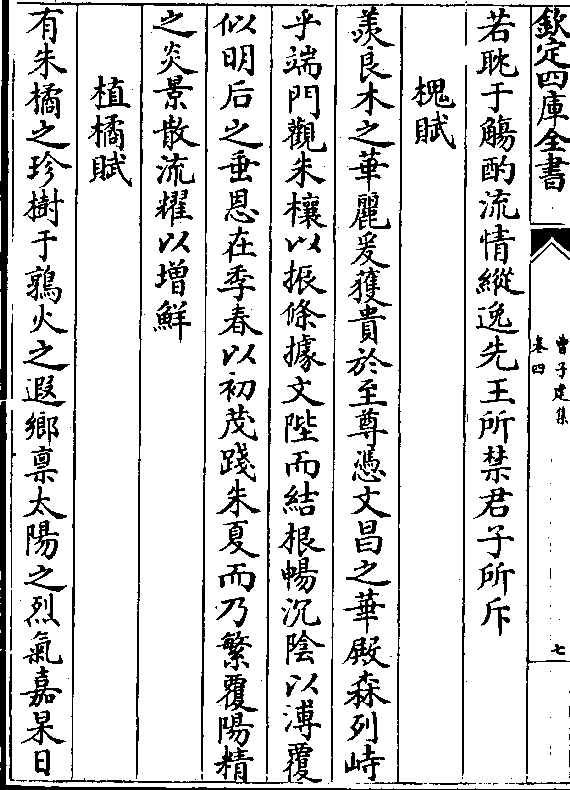 欽定四庫全書
曹子建集
卷四
七
若耽于觴酌流情縱逸先王所禁君子所斥
槐賦
羨良木之華麗爰獲貴於至尊憑文昌之華殿森列峙
乎端門觀朱榱以振條據文陛而結根暢沉陰以溥覆
似明后之垂恩在季春以初茂踐朱夏而乃繁覆陽精
之炎景散流耀以增鮮
植橘賦
有朱橘之珍樹于鶉火之遐鄉稟太陽之烈氣嘉杲日